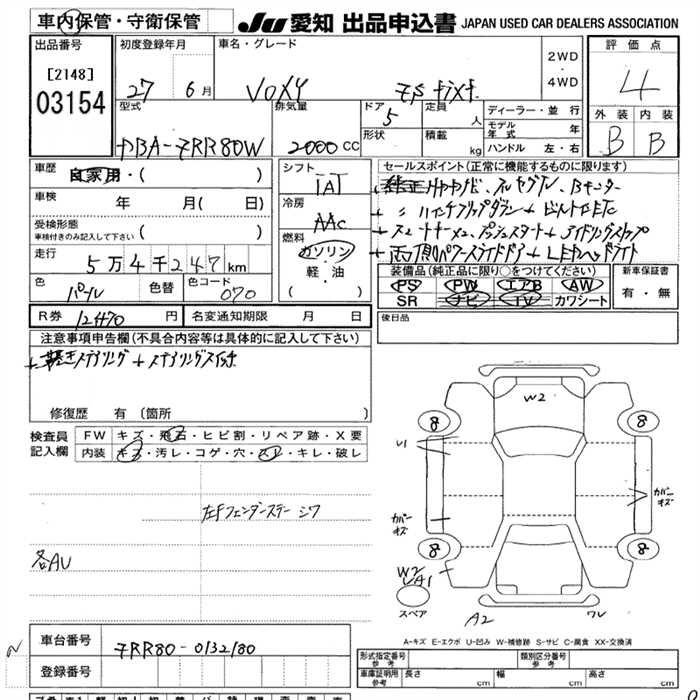 車内保管・守衛保管
JU 愛知 出品申込書 JAPAN USED CAR DEALERS ASSOCIATION
出品番号
[2148]
03154
初度登録年月
27 6月
車名・グレード
VOXY ZS
2WD
・
4WD
評価点
4
外装 内装
B B
型式
DBA-ZRR80W
排気量
2000CC
ドア 5
定員 人
形状
積載 kg
ディーラー・並行
モデル年式 年
ハンドル 左・右
車歴 自家用・( )
車検 年 月( 日)
受検形態
車検付きのみ記入して下さい ( )
走行 5万4千247km
色 パール 色替 色コード 070
シフト
IAT
冷房
AAC
燃料
ガソリン
・
軽・油
( )
セールスポイント(正常に機能するものに限ります)
・純正 フルセグTV、Bモニター
・〃 フリップダウン + ビルトインETC
・スマートキー×2、プッシュスタート + アイドリングストップ
・両側パワースライドドア + LEDヘッドライト
装備品(純正品に限り○をつけてください)
PS PW エアB AW
SR ナビ TV カワシート
新車保証書
有・無
R券 12470円 名変通知期限 月 日
後日品
注意事項申告欄(不具合内容等は具体的に記入して下さい)
+ 革巻きステアリング + ステアリングスイッチ
修復歴 有 (箇所
検査員
記入欄
FW キズ・飛石・ヒビ割・リペア跡・X要
内装 キズ・汚レ・コゲ・穴・スレ・キレ・破レ
左Fフェンダーステー シワ
各AU
W2
8 8
U1
カバーキズ
カバーキズ
8 8
W2
A1
スペア
A2
A-キズ E-エクボ U-凹み W-補修跡 S-サビ C-腐食 XX-交換済
車台番号 ZRR80-0132180
登録番号
形式指定番号
参考
類別区分番号
参考
車庫証明用
参考
長さ cm 幅 cm 高さ cm